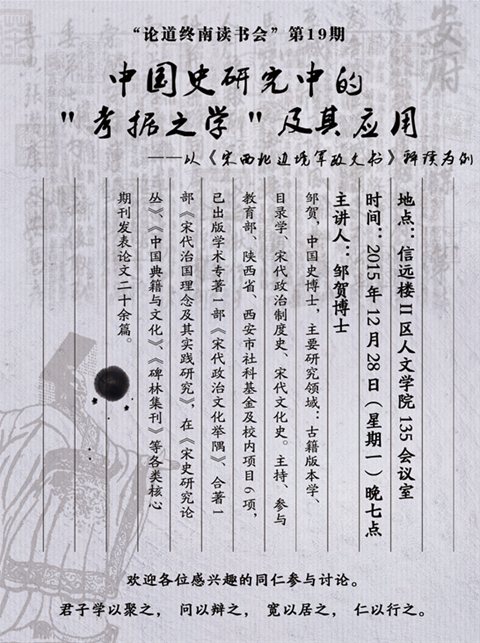 “论道终南读书会”第19期
中国史研究中的
"考据之学"及其应用
——以《宋西北边境军政文书》释读为例
地点：信远楼II区人文学院135会议室
时间：2015年12月28日（星期一）晚七点
主讲人：邹贺博士
邹贺，中国史博士，主要研究领域：古籍版本学、
目录学、宋代政治制度史、宋代文化史。主持、参与
教育部、陕西省、西安市社科基金及校内项目6项，
已出版学术专著1部《宋代政治文化举隅》、合著1
部《宋代治国理念及其实践研究》，在《宋史研究论
丛》、《中国典籍与文化》、《碑林集刊》等各类核心
期刊发表论文二十余篇。
欢迎各位感兴趣的同仁参与讨论。
君子学以聚之， 问以辩之， 宽以居之， 仁以行之。
安府